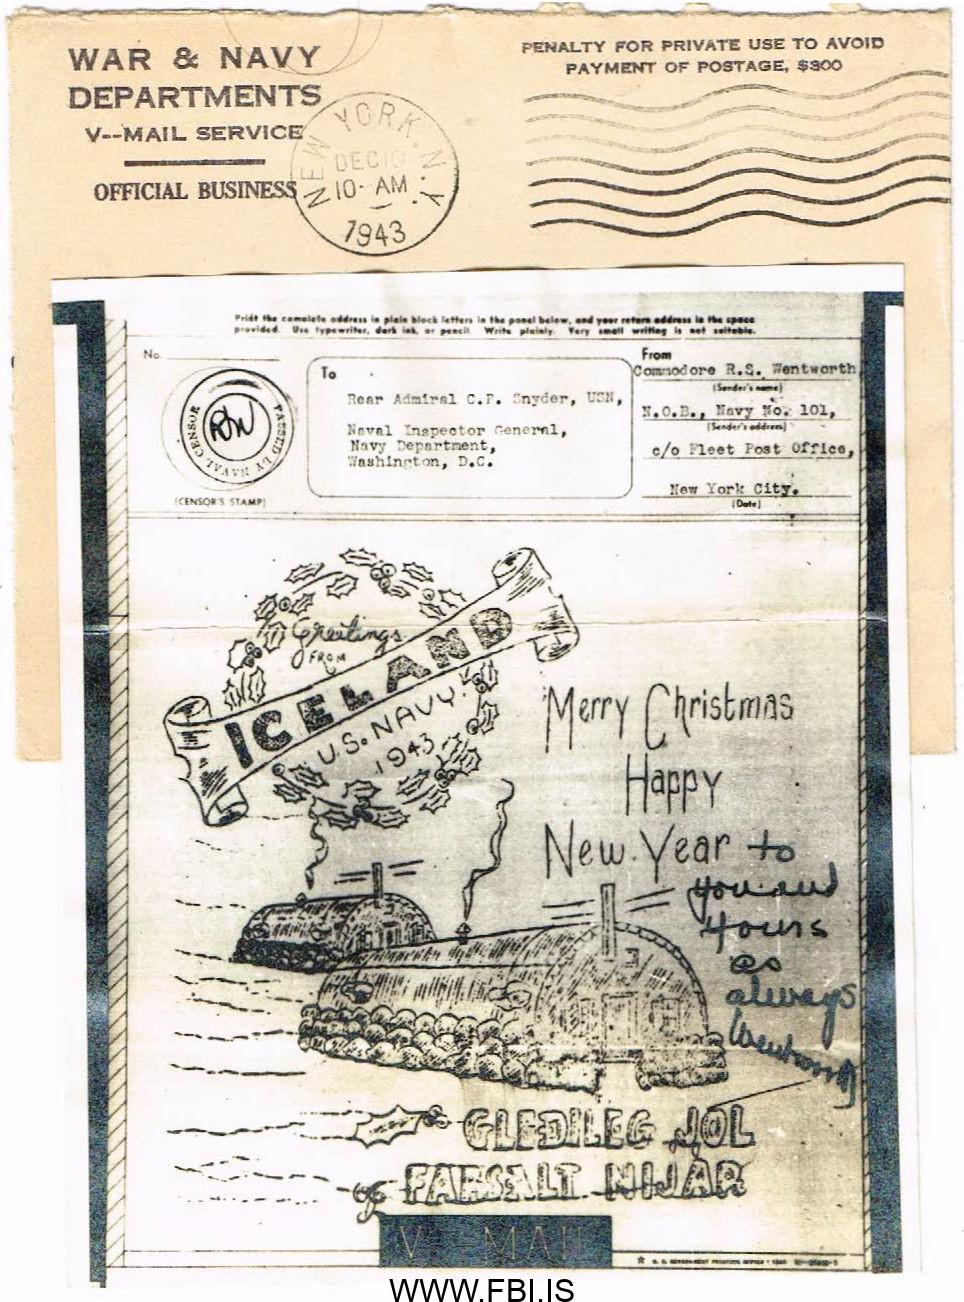 WAR & NAVY
DEPARTMENTS
V--MAIL SERVICE
OFFICIAL BUSINESS
NEW YORK, N.Y.
DEC 10
10- AM
1943
PENALTY FOR PRIVATE USE TO AVOID
PAYMENT OF POSTAGE, $300
Print the complete address in plain block letters in the panel below, and your return address in the space
provided. Use typewriter, dark ink, or pencil. Write plainly. Very small writing is not suitable.
No.
PASSED BY NAVAL CENSOR
(CENSOR'S STAMP)
To
Rear Admiral C.P. Snyder, USN,
Naval Inspector General,
Navy Department,
Washington, D.C.
From
Commodore R.S. Wentworth
(Sender's name)
N.O.B., Navy No. 101,
(Sender's address)
c/o Fleet Post Office,
New York City.
(Date)
Greetings
FROM
ICELAND
U.S. NAVY
1943
Merry Christmas
Happy
New Year to
you and
yours
as
always
Wentworth
GLEDILEG JOL
og FARSALT NIJAR
V MAIL
U. S. GOVERNMENT PRINTING OFFICE : 1943
WWW.FBI.IS